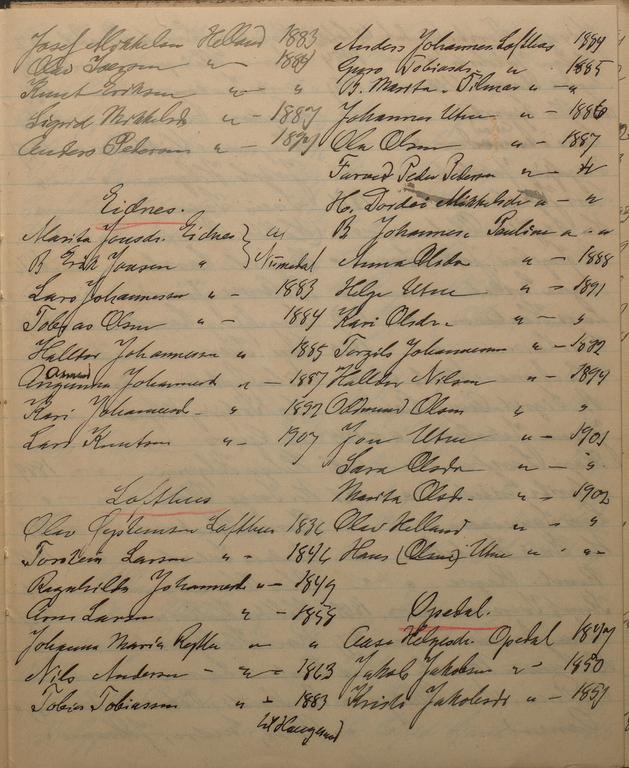 Josef Mikkelsen Helland 1883
Olav Iversen " - 1884
Knut Eriksen " - "
Sigrid Mikkelsdr " - 1887
Anders Petersen " -
Eidnes.
Marita Jonsdr. Eidnes
B Erik Jonsen " Numedal
Lars Johannessen " - 1883
Tobias Olsen " - 1884
Halldor Johannessen " 1885
Johannesd " - 1887
Kari Johannesd - " 1892
Lars Knutsen " - 1907
Lofthus
Olav Øystensen Lofthus 1836
Torstein Larsen " - 1846
Ragnhilda Johannesd " - 1849
Arne Larsen " - 1858
Johanna Maria " "
Nils Andersen - " - 1863
Tobias Tobiassen " - 1883
til Haugesund
Anders Johannes. Lofthus 1884
Guro Tobiasdr. " 1885
B. Marita - Tilmar " - "
Johannes Utne " - 1886
Ola Olsen " - 1887
Peder Petersen " - "
H. Dordei Mikkelsdr " - "
B Johannes Pauline " - "
Anna Olsdr " - 1888
Helge Utne " - 1891
Kari Olsdr. " - "
Torgils Johannessen " - 1892
Halldor Nilsen " - 1894
Oddmund Olsen " "
Jon Utne " - 1901
Sara Olsdr " - "
Marita Olsdr. " - 1902
Olav Helland " - "
Hans (Olsen) Utne " - "
Opedal.
Aase Helgesdr. Opedal
Jakob Jakobsen " - 1850
Kristi Jakobsdr " - 1851